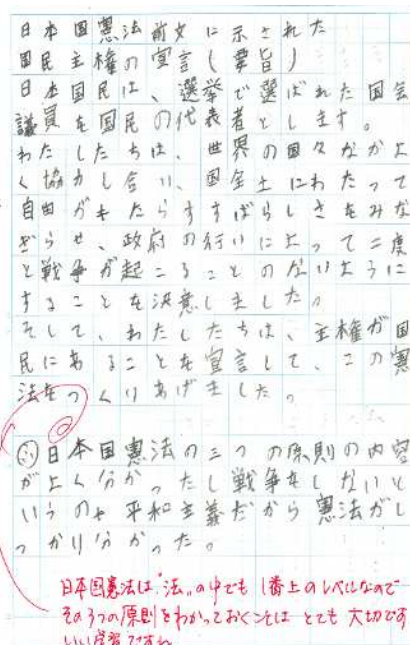 日本国憲法前文に示された
国民主権の宣言(要旨)
日本国民は、選挙で選ばれた国会
議員を国民の代表者とします。
わたしたちは、世界の国々なかよ
く協力し合い、国全土にわたって
自由がもたらすすばらしさをみな
ぎらせ、政府の行いによって二度
と戦争が起こることのないように
することを決意しました。
そして、わたしたちは、主権が国
民にあることを宣言して、この憲
法をつくりあげました。
日本国憲法の三つの原則の内容
がよく分かったし戦争をしないと
いうのも平和主義だから憲法がし
っかり分かった。
日本国憲法は"法"の中でも1番上のレベルなので
その3つの原則をわかっておくことは とても 大切です
いい学習ですね